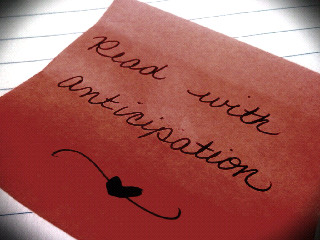 Read with
anticipation